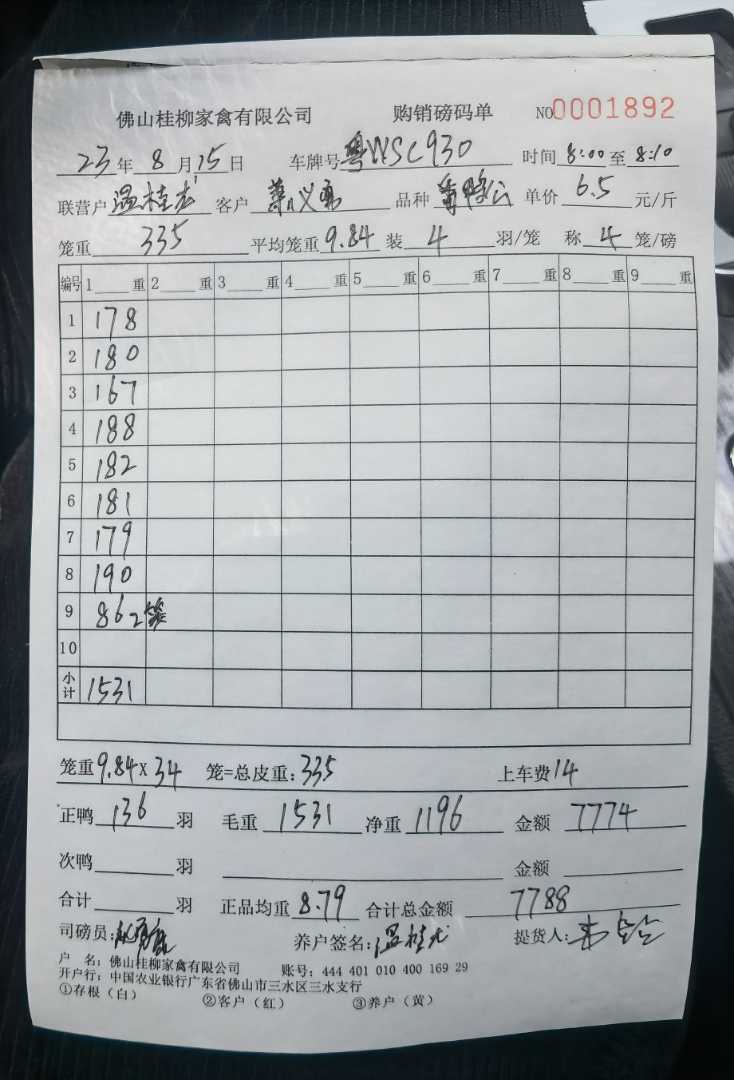 佛山桂柳家禽有限公司 购销磅码单 NO0001892
23年8月15日 车牌号粤WSC930 时间8:00至8:10
联营户温桂龙 客户 义勇 品种 单价6.5元/斤
笼重335 平均笼重9.84 装4羽/笼 称4笼/磅
编号 1 重 2 重 3 重 4 重 5 重 6 重 7 重 8 重 9 重
1 178
2 180
3 167
4 188
5 182
6 181
7 179
8 190
9 86 2笼
10
小计 1531
笼重9.84×34 笼=总皮重:335 上车费14
正鸭136羽 毛重1531 净重1196 金额7774
次鸭 羽 金额
合计 羽 正品均重8.79 合计总金额7788
司磅员: 养户签名:温桂龙 提货人:
户 名:佛山桂柳家禽有限公司 账号:444 401 010 400 169 29
开户行:中国农业银行广东省佛山市三水区三水支行
①存根(白) ②客户(红) ③养户(黄)